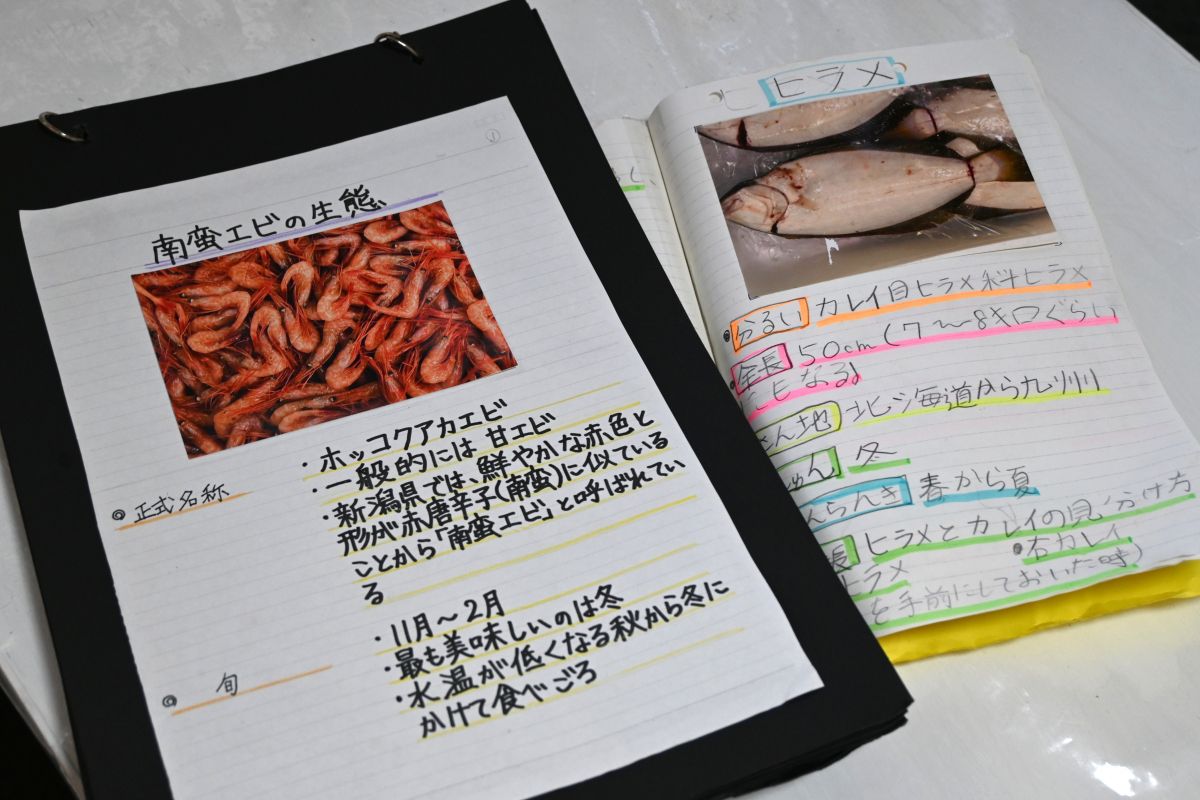 ①
南蛮エビの生態
◎正式名称
・ホッコクアカエビ
・一般的には 甘エビ
・新潟県では、鮮やかな赤色と
形が赤唐辛子(南蛮)に似ている
ことから「南蛮エビ」と呼ばれてい
る
◎旬
・11月～2月
・最も美味しいのは冬
・水温が低くなる秋から冬に
かけて食べごろ
ヒラメ
●分るい カレイ目ヒラメ科ヒラメ
●全長 50cm(7～8キロぐらい
にもなる)
さん地 北海道から九州
しゅん 冬
んらんき 春から夏
長 ヒラメとカレイの見分け方
ラメ ●右カレイ
を手前にしておいた時)